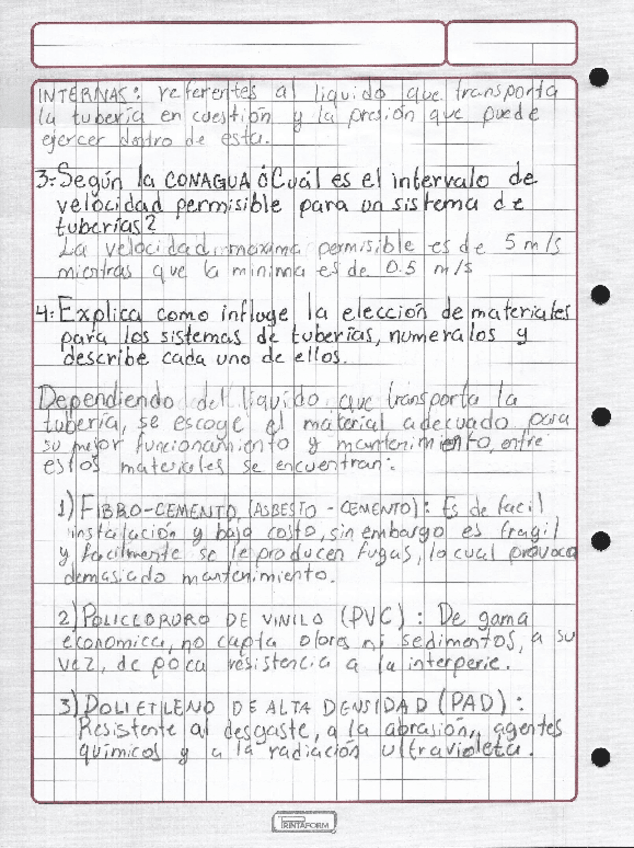 INTERNAS: referentes al liquido que transporta
la tubería en cuestión y la presión que puede
ejercer dentro de esta.
3.- Según la CONAGUA ¿Cuál es el intervalo de
velocidad permisible para un sistema de
tuberías?
La velocidad maxima permisible es de 5 m/s
mientras que la minima es de 0.5 m/s
4.- Explica como influye la elección de materiales
para los sistemas de tuberías, numeralos y
describe cada uno de ellos.
Dependiendo del liquido que transporta la
tubería, se escoge el material adecuado para
su mejor funcionamiento y mantenimiento, entre
estos materiales se encuentran:
1) FIBRO-CEMENTO (ASBESTO - CEMENTO): Es de facil
instalación y bajo costo, sin embargo es fragil
y facilmente se le producen fugas, lo cual provoca
demasiado mantenimiento.
2) POLICLORURO DE VINILO (PVC): De gama
economica, no capta olores ni sedimentos, a su
vez, de poca resistencia a la interperie.
3) POLIETILENO DE ALTA DENSIDAD (PAD):
Resistente al desgaste, a la abrasión, agentes
químicos y a la radiación ultravioleta.
PRINTAFORM